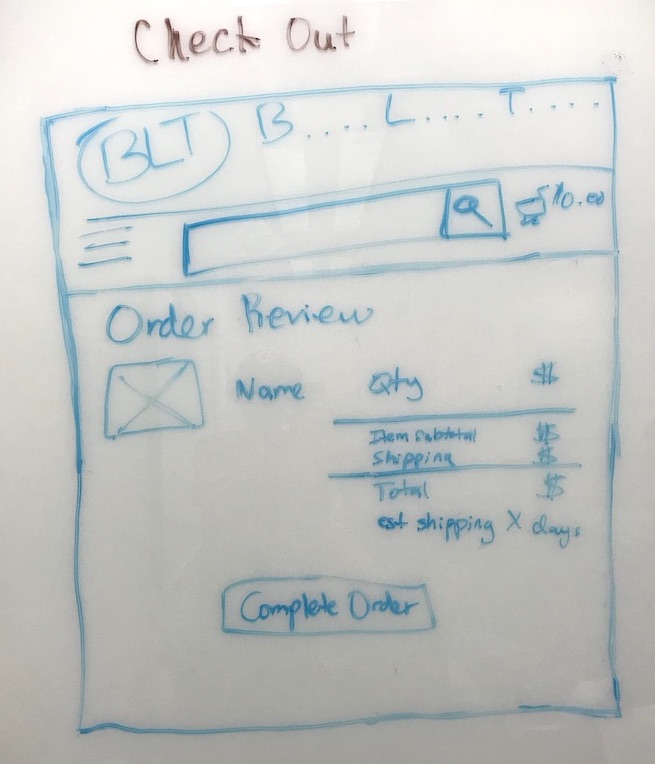 Check Out
BLT B.... L.... T....
10.00
Order Review
Name Qty $
Item Subtotal $$
Shipping $
Total $
est shipping X days
Complete Order